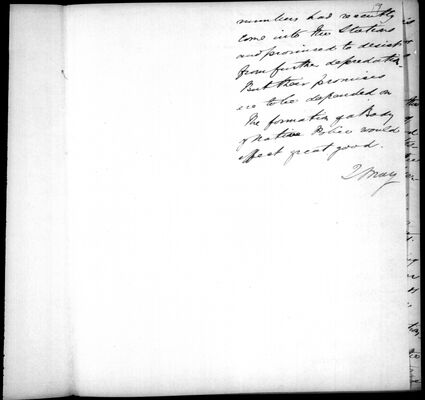 numbers had recently
come into the Stations
and promised to desist
from further depredation.
But their promises
are to be depended on
The formation of a Body
of Native Police would
effect great good.
2 May